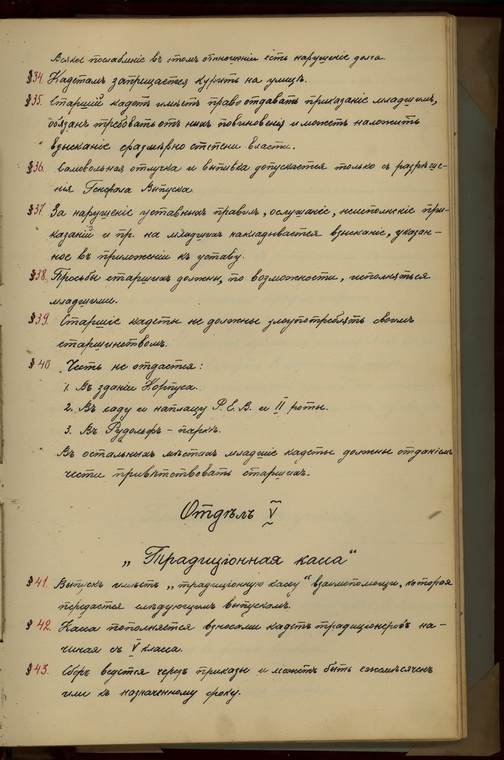 Всякое послабленіе въ этомъ отношеніи есть нарушеніе долга.
§34. Кадетамъ запрещается курить на улицѣ.
§35. Старшій кадетъ имѣетъ право отдавать приказаніе младшимъ,
обязанъ требовать отъ нихъ повиновенія и можетъ наложить
взысканіе сразмѣрно степени власти.
§36. Самовольная отлучка и выпивка допускается только съ разрѣше-
нія Генерала Выпуска.
§37. За нарушеніе уставныхъ правилъ, ослушаніе, неисполненіе при-
казаній и пр. на младшихъ накладывается взысканіе, указан-
ное въ приложеніи къ уставу.
§38. Просьбы старшихъ должны, по возможности, исполняться
младшими.
§39. Старшіе кадеты не должны злоупотреблять своимъ
старшинствомъ.
§40. Честь не отдается:
1. Въ зданіи Корпуса.
2. Въ саду и на плацу Р.Е.В. и II роты.
3. Въ Рудольфъ-паркѣ.
Въ остальныхъ мѣстахъ младшіе кадеты должны отданіемъ
чести привѣтствовать старшихъ.
Отдѣлъ V
„Традиціонная касса“
§41. Выпускъ имѣетъ „традиціонную кассу“ взаимопомощи, которая
передается слѣдующимъ выпускамъ.
§42. Касса пополняется взносами кадетъ традиціонеровъ на-
чиная съ V класса.
§43. Сборъ ведется черезъ приказы и можетъ быть ежемѣсяченъ
или къ назначенному сроку.